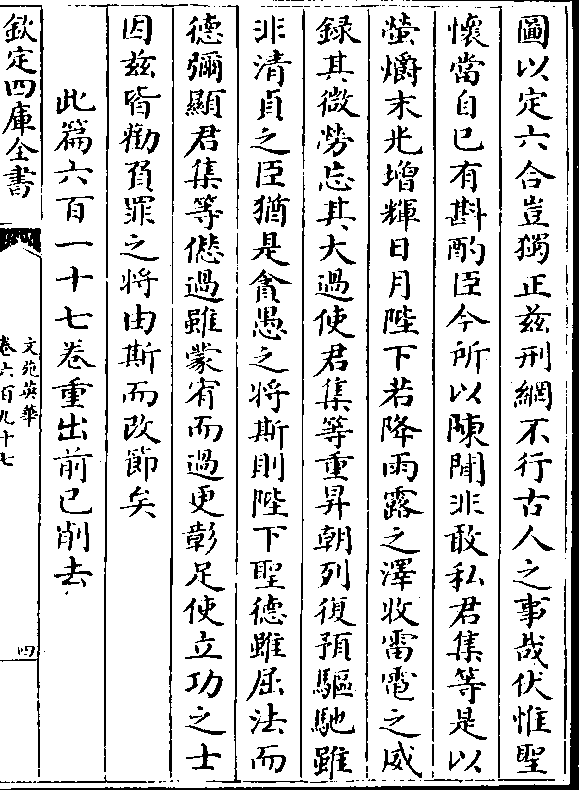 圖以定六合豈獨正兹刑網不行古人之事哉伏惟聖
懷當自已有斟酌臣今所以陳聞非敢私君集等是以
螢爝末光增輝日月陛下若降雨露之澤收雷電之威
録其微勞忘其大過使君集等重昇朝列復預驅馳雖
非清貞之臣猶是貪愚之将斯則陛下聖德雖屈法而
德彌顯君集等愆過雖蒙宥而過更彰足使立功之士
因兹皆勸負罪之将由斯而改節矣
此篇六百一十七卷重出前已削去
欽定四庫全書
文苑英華
卷六百九十七
四